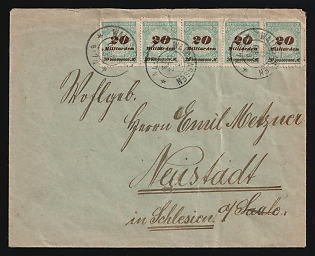 20 20 20 20 20
Milliarden Milliarden Milliarden Milliarden Milliarden
Wohlgeb.
Herrn Emil Metzner
Neustadt
in Schlesien a/Saale.